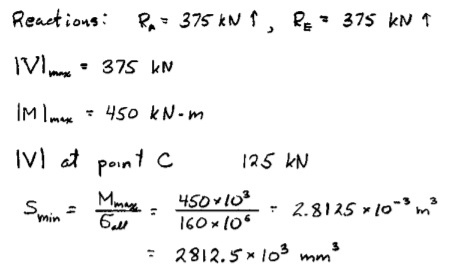 Reactions: R_A = 375 kN ↑ , R_E = 375 kN ↑
|V|max = 375 kN
|M|max = 450 kN-m
|V| at point C 125 kN
S_min = M_max / σ_all = 450×10³ / 160×10⁶ = 2.8125×10⁻³ m³
= 2812.5×10³ mm³